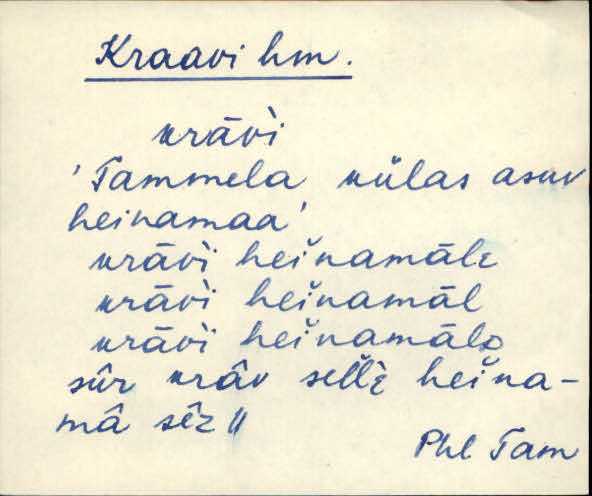 Kraavi hm.
krāvì
'Tammela külas asuv
heinamaa'
krāvì heǐnamāle
krāvì heǐnamāl
krāvì heǐnamālɒ
sûr krâv sellè heǐna-
mâ sêz //
Phl Tam